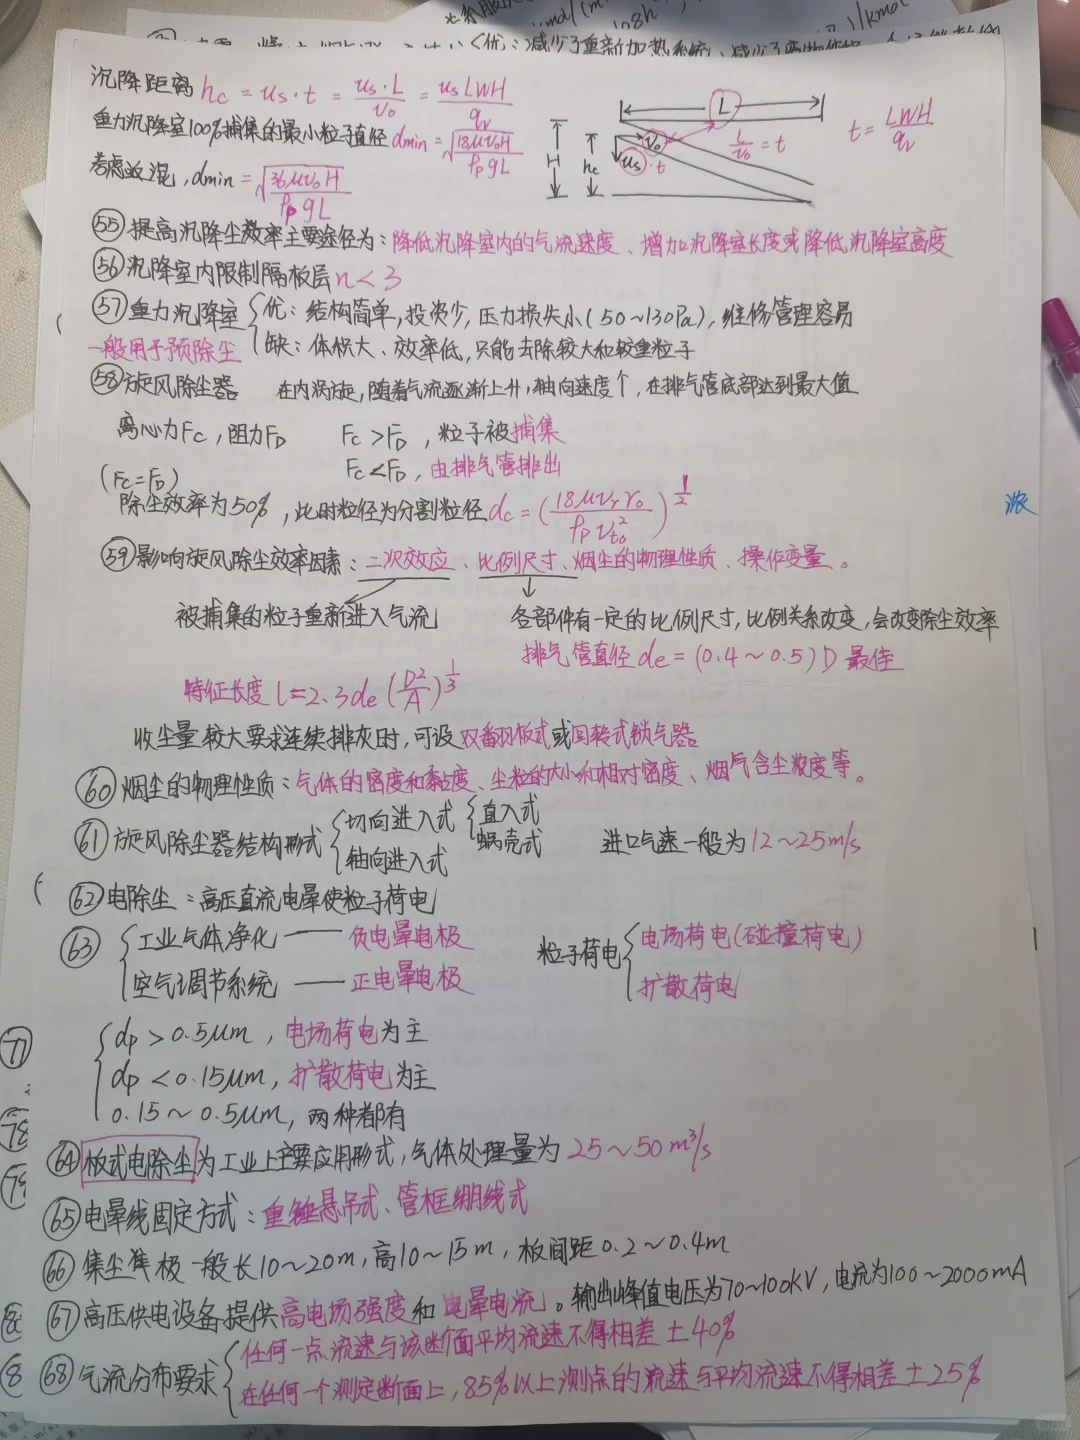 沉降距离 hc = us·t = us·L/v₀ = usLWH/qv
L
L/v₀ = t
t = LWH/qv
H
hc
v₀
us·t
重力沉降室100%捕集的最小粒子直径 dmin = √(18μv₀H/ρpgL)
考虑返混, dmin = √(36μv₀H/ρpgL)
55 提高沉降尘效率主要途径为: 降低沉降室内的气流速度、增加沉降室长度或降低沉降室高度
56 沉降室内限制隔板层 n < 3
57 重力沉降室 { 优: 结构简单, 投资少, 压力损失小(50~130Pa), 维修管理容易
一般用于预除尘 缺: 体积大、效率低, 只能去除较大和较重粒子
58 旋风除尘器 在内涡旋, 随着气流逐渐上升, 轴向速度↑, 在排气管底部达到最大值
离心力Fc, 阻力FD Fc > FD, 粒子被捕集
Fc < FD, 由排气管排出
(Fc = FD)
除尘效率为50%, 此时粒径为分割粒径 dc = (18μvr r₀/ρp vt₀²)^1/2
浓
59 影响旋风除尘效率因素: 二次效应、比例尺寸、烟尘的物理性质、操作变量。
被捕集的粒子重新进入气流 各部件有一定的比例尺寸, 比例关系改变, 会改变除尘效率
排气管直径 de = (0.4~0.5)D 最佳
特征长度 l = 2.3de(D²/A)^1/3
收尘量较大要求连续排灰时, 可设双翻板式或回转式锁气器
60 烟尘的物理性质: 气体的密度和黏度、尘粒的大小和相对密度、烟气含尘浓度等。
61 旋风除尘器结构形式 { 切向进入式 { 直入式
蜗壳式
轴向进入式
进口气速一般为12~25m/s
62 电除尘: 高压直流电晕使粒子荷电
63 { 工业气体净化 —— 负电晕电极
空气调节系统 —— 正电晕电极
粒子荷电 { 电场荷电(碰撞荷电)
扩散荷电
{ dp > 0.5μm, 电场荷电为主
dp < 0.15μm, 扩散荷电为主
0.15~0.5μm, 两种都有
77
78
64 板式电除尘为工业上主要应用形式, 气体处理量为 25~50m³/s
65 电晕线固定方式: 重锤悬吊式、管框绷线式
66 集尘极一般长10~20m, 高10~15m, 板间距0.2~0.4m
67 高压供电设备提供高电场强度和电晕电流。输出峰值电压为70~100kV, 电流为100~2000mA
68 气流分布要求 { 任何一点流速与该断面平均流速不得相差±40%
在任何一个测定断面上, 85%以上测点的流速与平均流速不得相差±25%